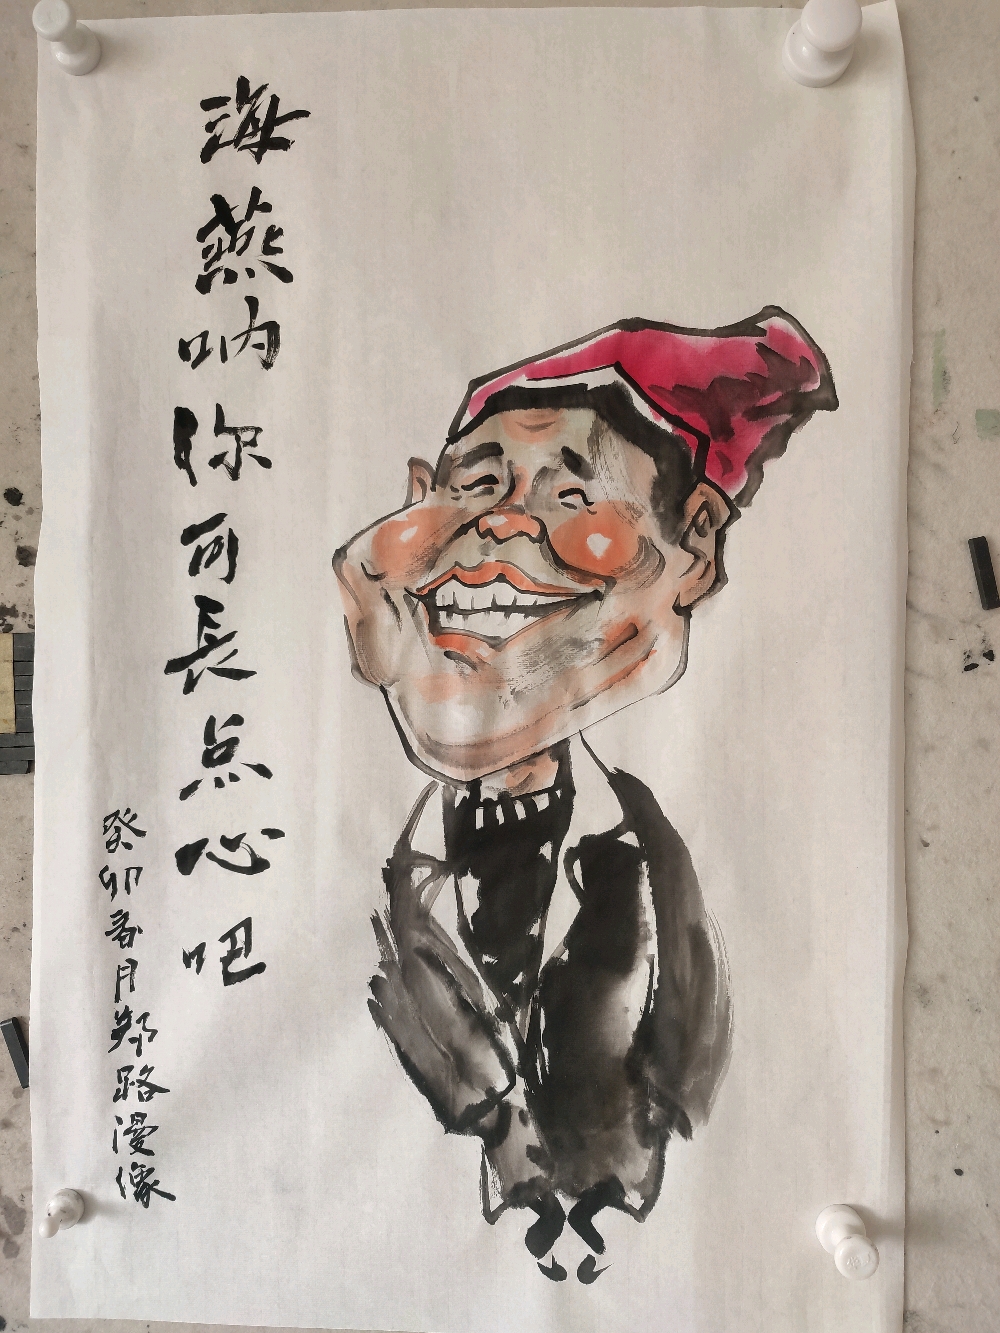 海燕呐你可长点心吧
癸卯春月郑路漫像